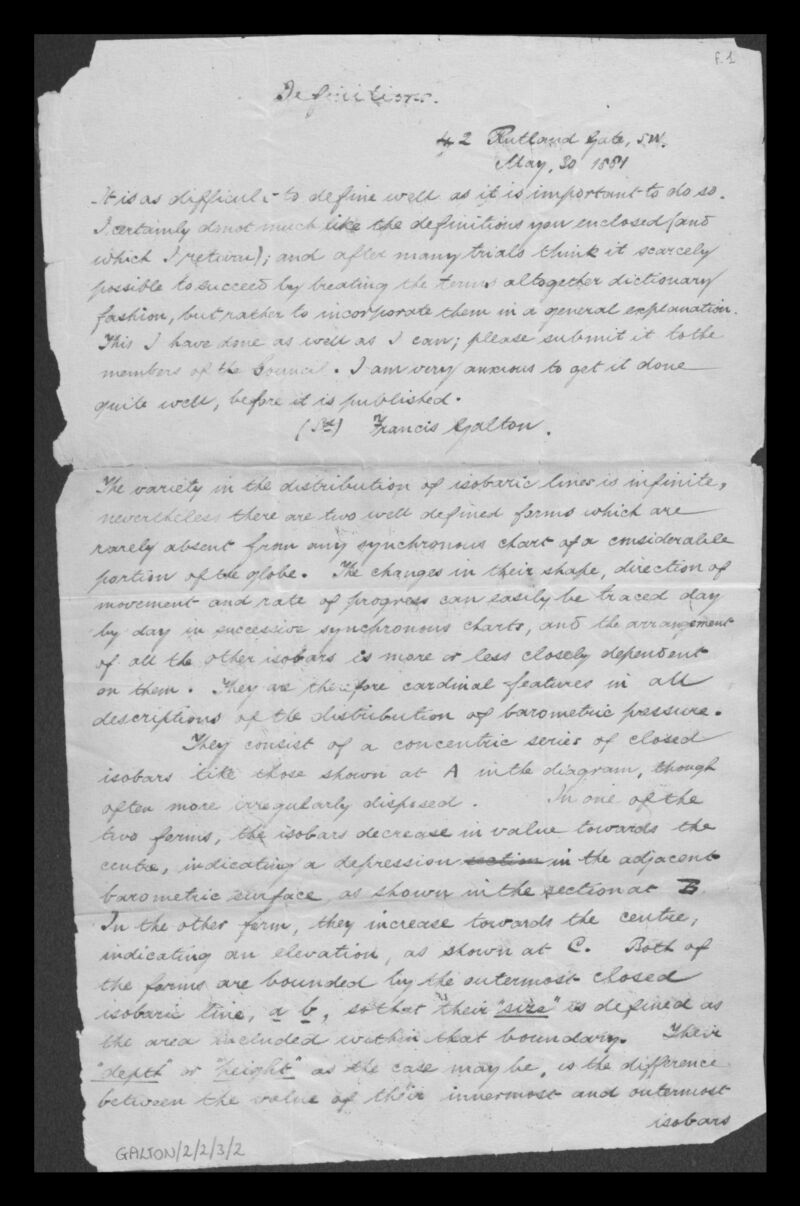 f.1
Definitions.
42 Rutland Gate, S.W.
May, 30 1881
It is as difficult to define well as it is important to do so.
I certainly do not much like the definitions you enclosed (and
which I return); and after many trials think it scarcely
possible to succeed by treating the terms altogether dictionary
fashion, but rather to incorporate them in a general explanation.
This I have done as well as I can; please submit it to the
members of the Council. I am very anxious to get it done
quite well, before it is published.
(Sd) Francis Galton.
The variety in the distribution of isobaric lines is infinite,
nevertheless there are two well defined forms which are
rarely absent from any synchronous chart of a considerable
portion of the globe. The changes in their shape, direction of
movement and rate of progress can easily be traced day
by day in successive synchronous charts, and the arrangement
of all the other isobars is more or less closely dependent
on them. They are therefore cardinal features in all
descriptions of the distribution of barometric pressure.
They consist of a concentric series of closed
isobars like those shown at A in the diagram, though
often more irregularly disposed. In one of the
two forms, the isobars decrease in value towards the
centre, indicating a depression section in the adjacent
barometric surface, as shown in the section at B.
In the other form, they increase towards the centre,
indicating an elevation, as shown at C. Both of
the forms are bounded by the outermost closed
isobaric line, a b, so that their "size" is defined as
the area included within that boundary. Their
"depth" or "height" as the case may be, is the difference
between the value of their innermost and outermost
isobars
GALTON/2/2/3/2